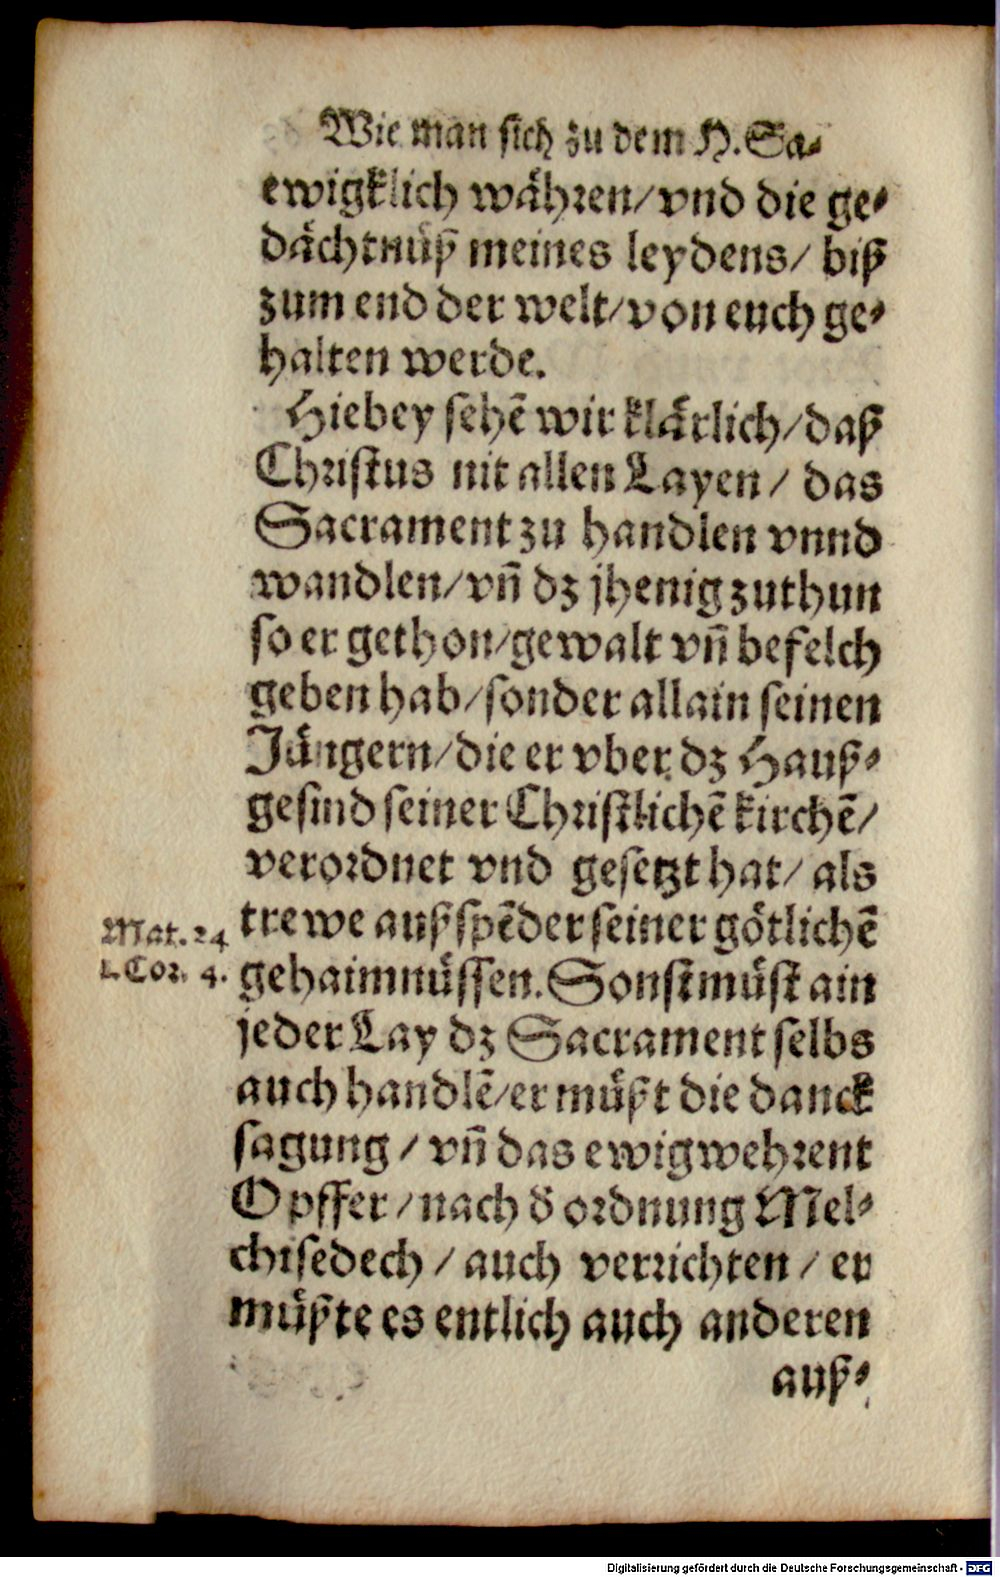 Wie man sich zu dem H. Sa⸗
ewigklich wåhren/ vnd die ge⸗
dåchtnüß meines leydens/ biß
zum end der welt/ von euch ge⸗
halten werde.
Hiebey sehē wir klårlich/ daß
Christus nit allen Layen/ das
Sacrament zu handlen vnnd
wandlen/ vn̄ dz jhenig zuthun
so er gethon/ gewalt vn̄ befelch
geben hab/ sonder allain seinen
Jüngern/ die er vber dz Hauß⸗
gesind seiner Christlichē kirchē/
verordnet vnd gesetzt hat/ als
Mat. 24 trewe außspēder seiner götlichē
1. Cor. 4. gehaimnüssen. Sonst müst ain
jeder Lay dz Sacrament selbs
auch handlē/ er müßt die danck
sagung/ vn̄ das ewigwehrent
Opffer/ nach đ ordnung Mel⸗
chisedech/ auch verrichten/ er
müßte es entlich auch anderen
auß⸗
Digitalisierung gefördert durch die Deutsche Forschungsgemeinschaft - DFG